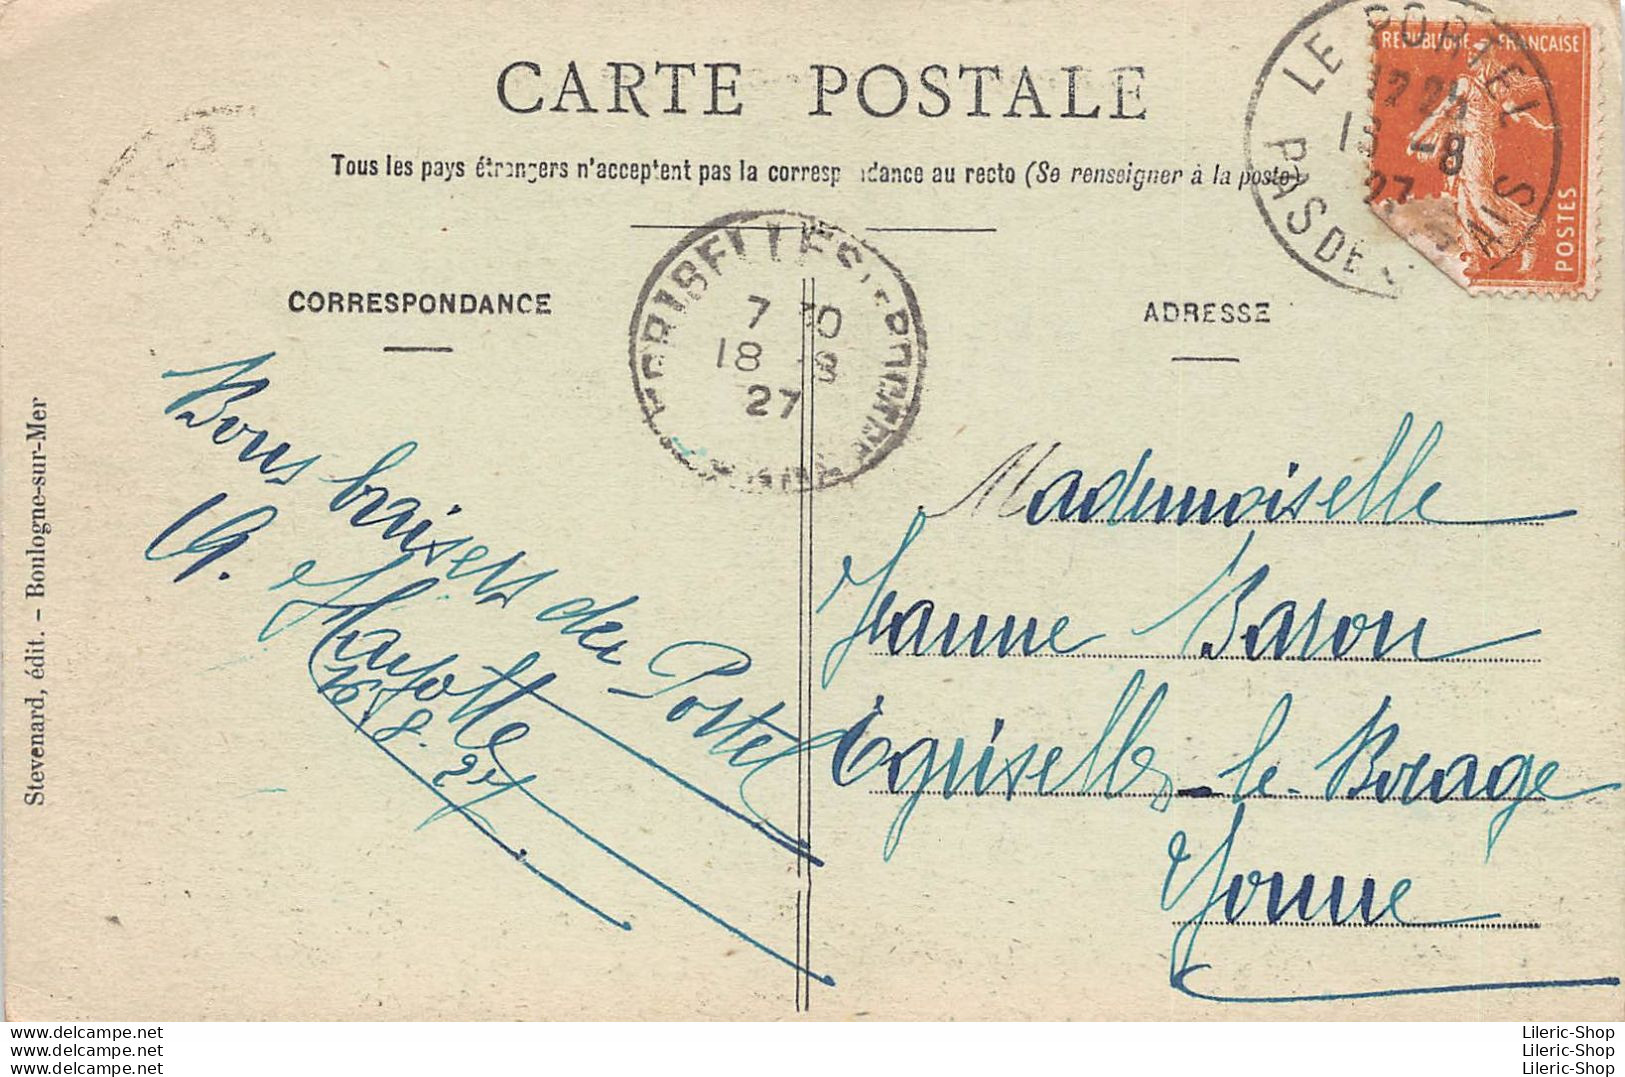 CARTE POSTALE
Tous les pays étrangers n'acceptent pas la correspondance au recto (Se renseigner à la poste)
LE PORTEL
12 25
13 -8
27
PAS DE CALAIS
REPUBLIQUE FRANÇAISE
POSTES
CORRESPONDANCE
ADRESSE
7 30
18 8
27
Bons baisers du Portel
G. Mayotte
16.8.27
Mademoiselle
Jeanne Baron
Egriselles-le-Bocage
Yonne
Stevenard, édit. - Boulogne-sur-Mer
www.delcampe.net
www.delcampe.net
www.delcampe.net
Lileric-Shop
Lileric-Shop
Lileric-Shop